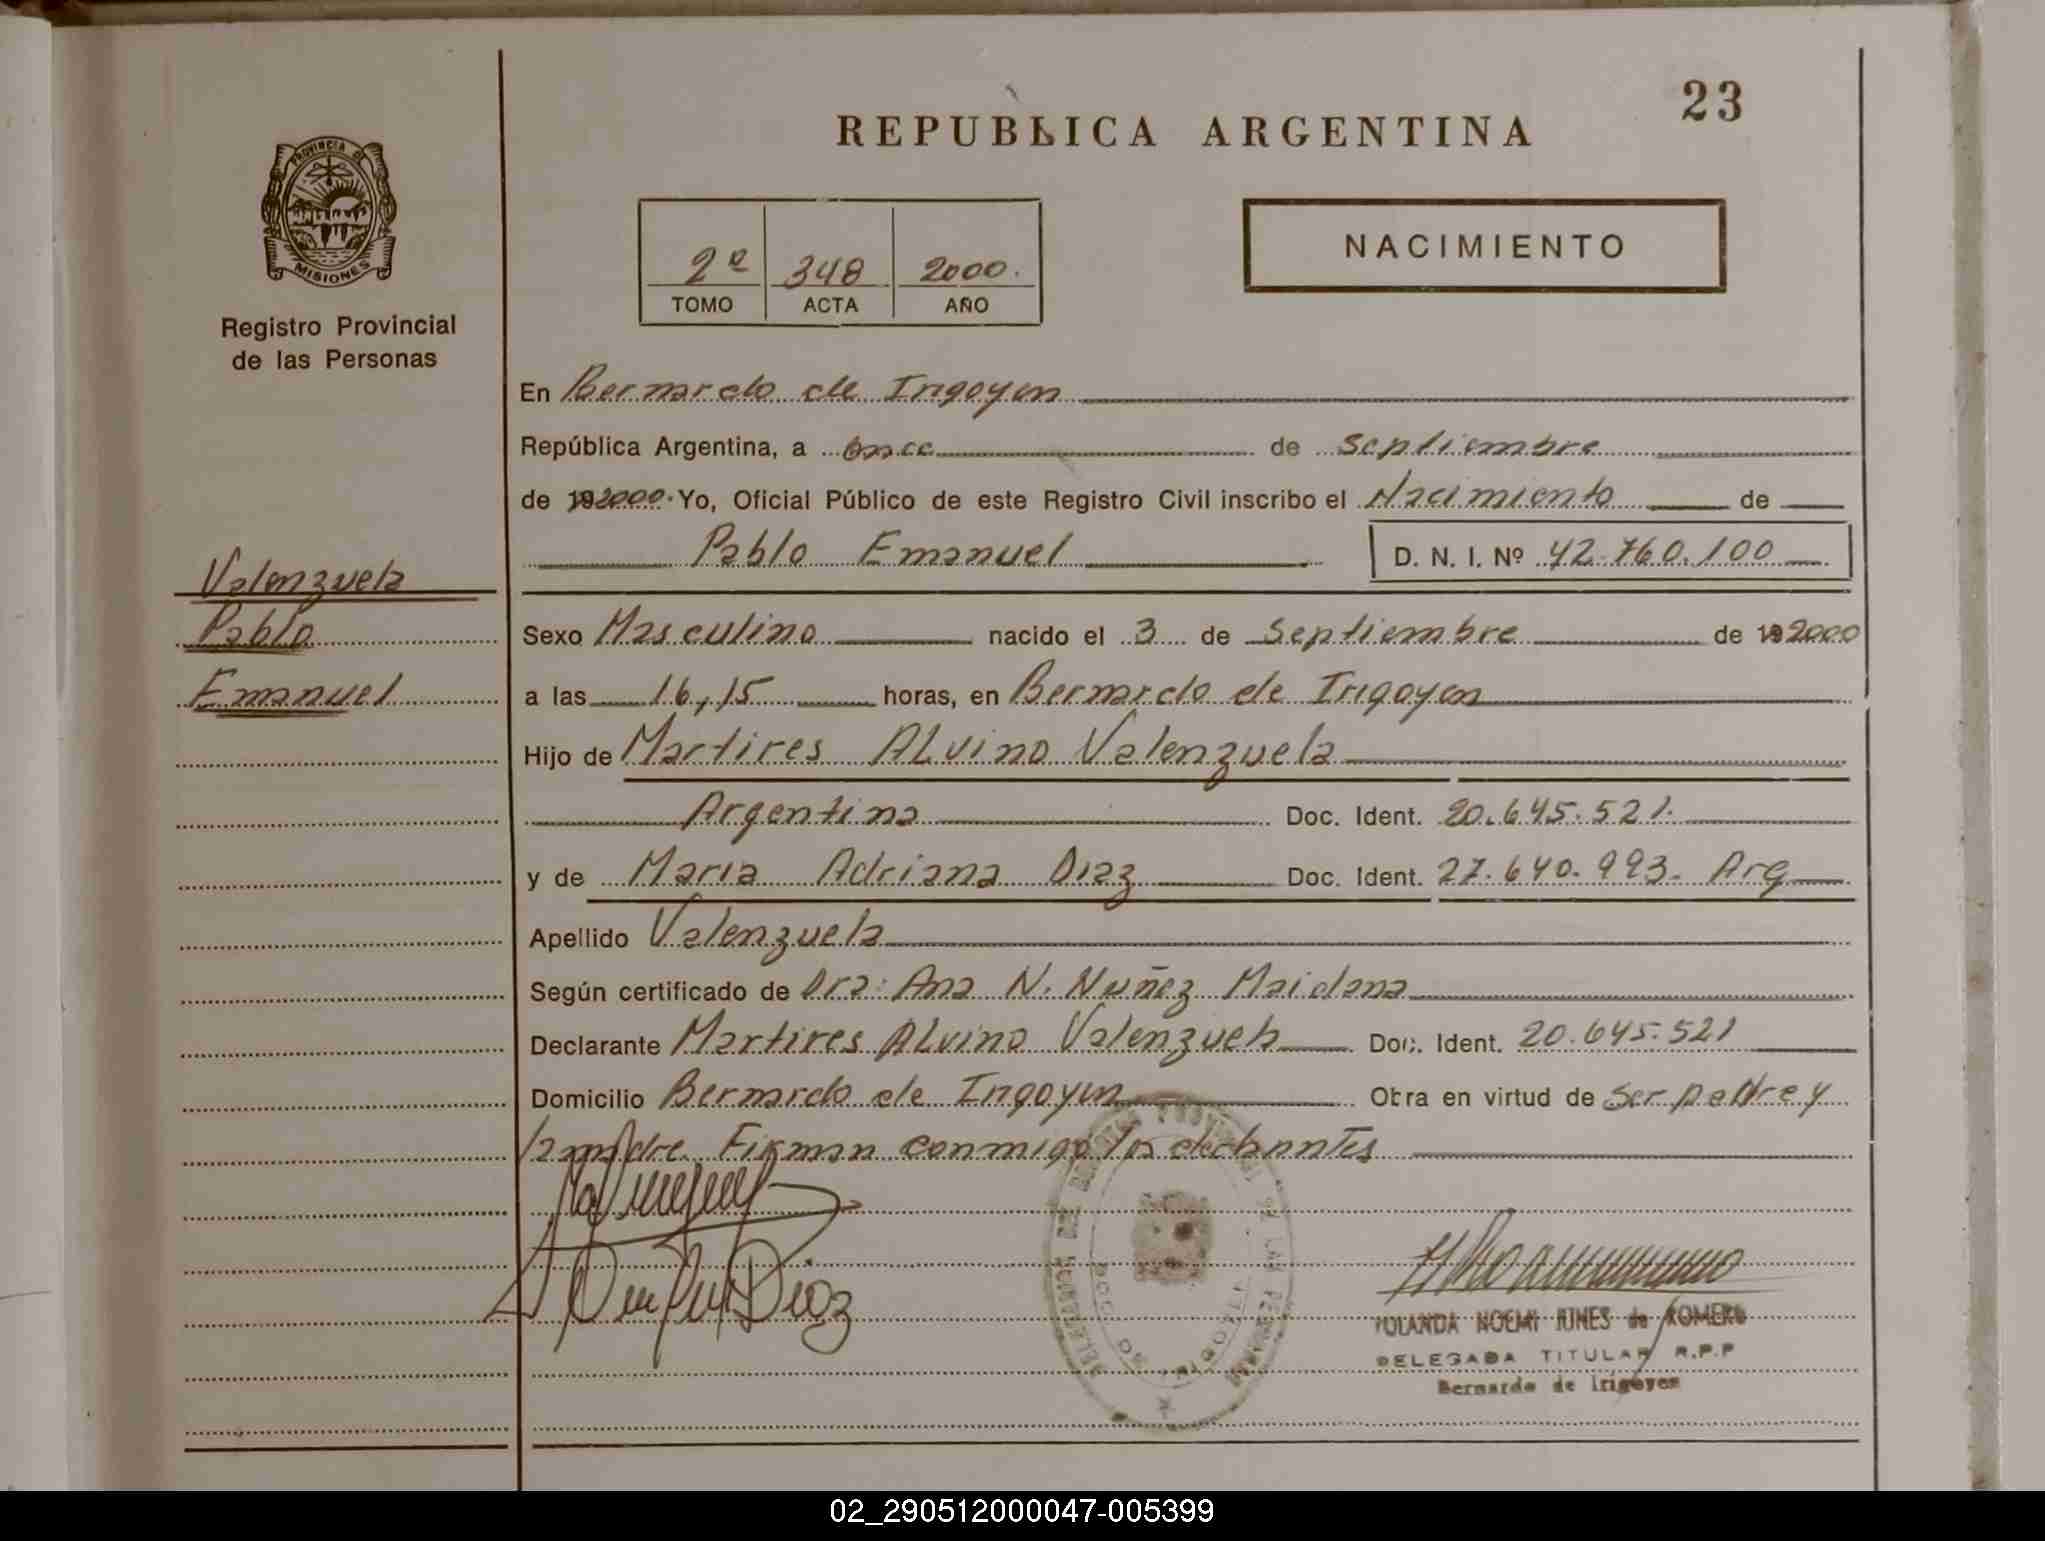 23
REPUBLICA ARGENTINA
PROVINCIA DE
MISIONES
Registro Provincial
de las Personas
2º 348 2000.
TOMO ACTA AÑO
NACIMIENTO
En Bernardo de Irigoyen
República Argentina, a once de septiembre
de 192000. Yo, Oficial Público de este Registro Civil inscribo el Nacimiento de
Pablo Emanuel D. N. I. Nº 42.760.100
Valenzuela
Pablo
Emanuel
Sexo Masculino nacido el 3 de septiembre de 192000
a las 16,15 horas, en Bernardo de Irigoyen
Hijo de Martires ALvino Valenzuela
Argentina Doc. Ident. 20.645.521.
y de Maria Adriana Diaz Doc. Ident. 27.640.993. Arg
Apellido Valenzuela
Según certificado de Dra: Ana N. Nuñez Maidana
Declarante Martires ALvino Valenzuela Doc. Ident. 20.645.521
Domicilio Bernardo de Irigoyen Obra en virtud de ser padre y
la madre Firman conmigo los
Diaz
DEL REGISTRO PROVINCIAL DE LAS PERSONAS
YOLANDA NOEMI de ROMERO
DELEGADA TITULAR R.P.P
Bernardo de Irigoyen
02_290512000047-005399